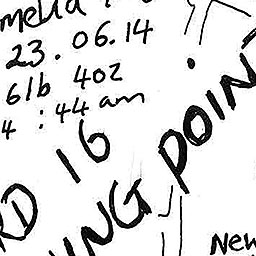 23.06.14
6lb 4oz
4:44am
RD 16
ING POINT
New